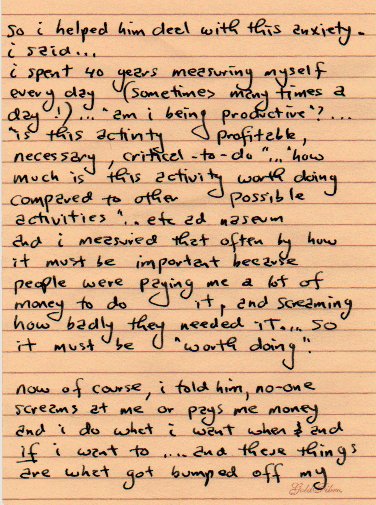 so i helped him deal with this anxiety.
i said...
i spent 40 years measuring myself
every day (sometimes many times a
day!)... "am i being productive"?...
"is this activity profitable,
necessary, critical-to-do"..."how
much is this activity worth doing
compared to other possible
activities"... etc ad naseum
and i measured that often by how
it must be important because
people were paying me a lot of
money to do it, and screaming
how badly they needed it... so
it must be "worth doing".
now of course, i told him, no-one
screams at me or pays me money
and i do what i want when & and
if i want to .... and these things
are what got bumped off my